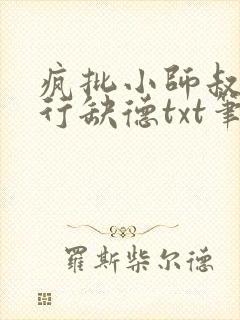 疯批小師叔
行缺德txt筆
羅斯柴尔德